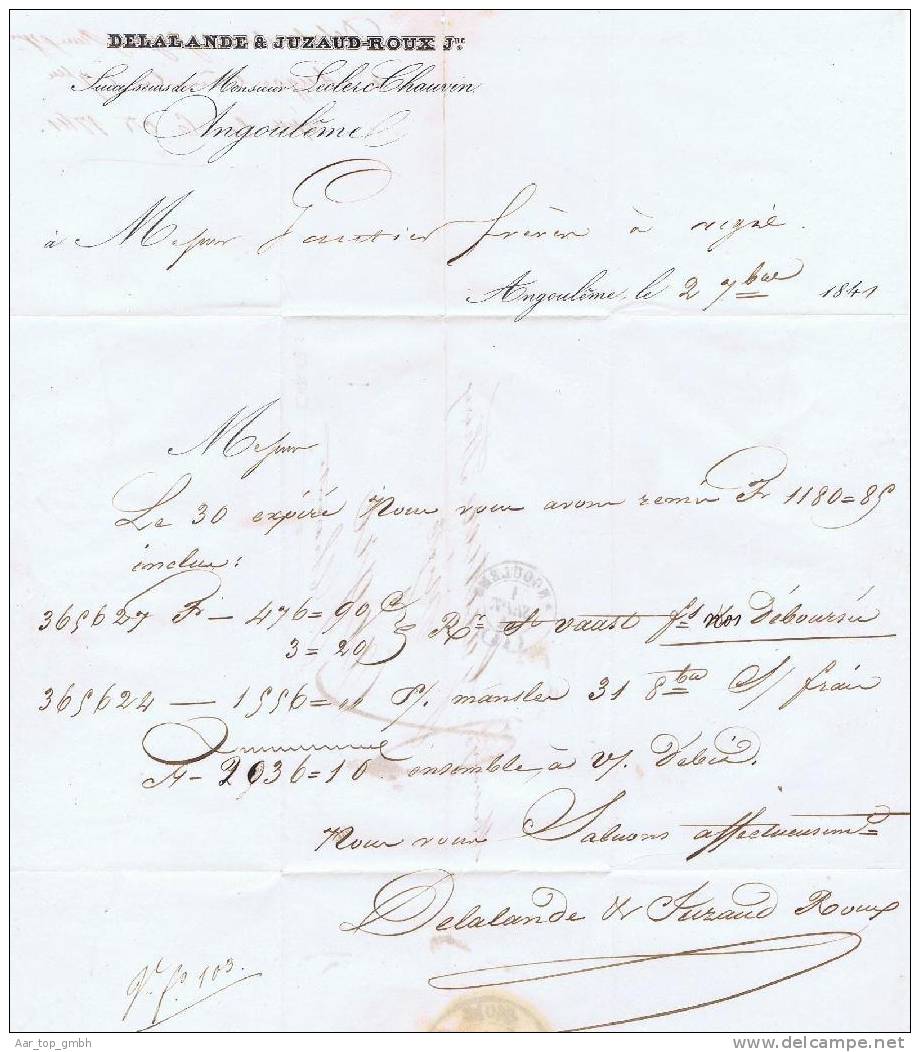 DELALANDE & JUZAUD-ROUX Jne
Successeurs de Monsieur Leclerc-Chauvin
Angoulême
à Messieurs Gautier frères à aigre.
Angoulême, le 2 7bre 1841
Messieurs
Le 30 expiré Nous vous avons remis Fr 1180=85
inclus:
365627 Fr — 476=90 } Rr St vaast fs Nos Déboursés
3=20
365624 — 1556=" S/. mansler 31 8bre S/ frais
Fr 2036=10 ensemble, à V/. Débit.
Nous vous Saluons affectueusemt
Delalande & Juzaud Roux
Vr fo 103.
Aar_top_gmbh
www.delcampe.net